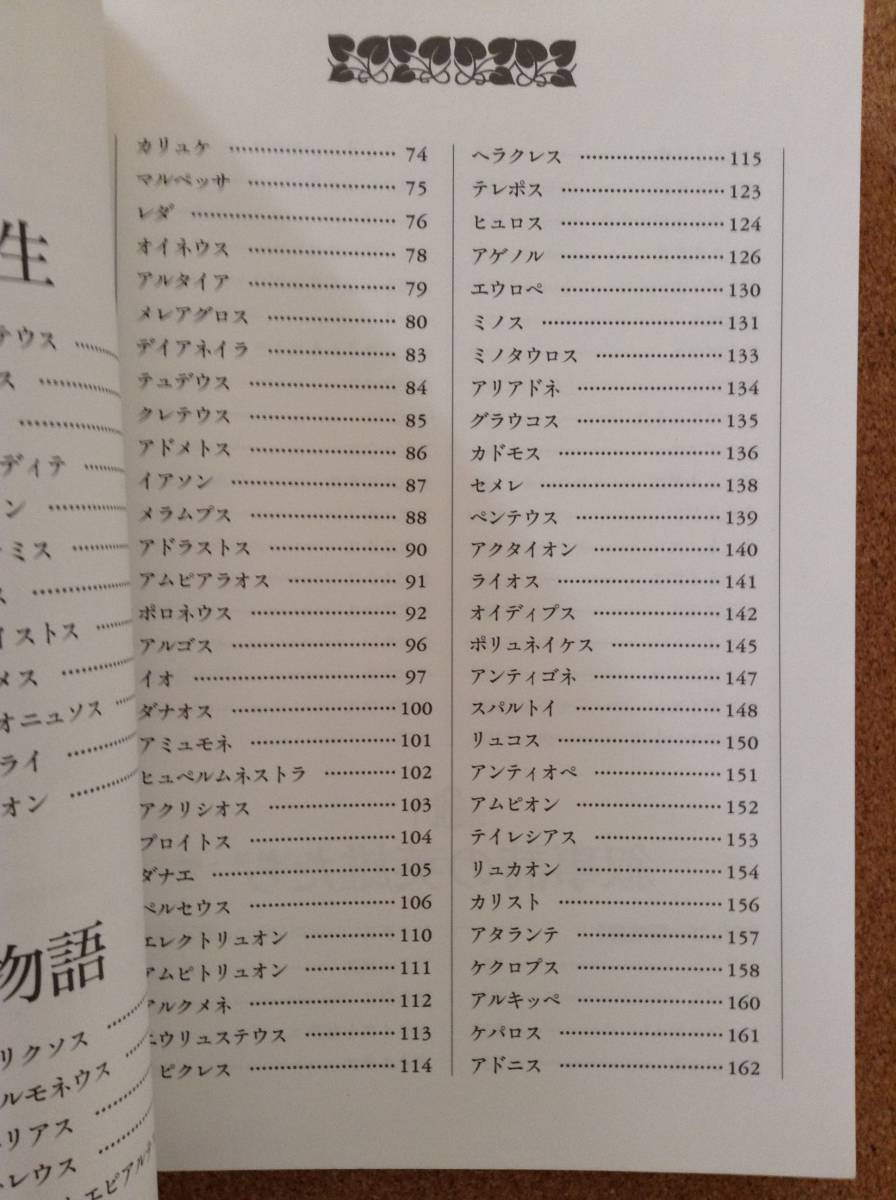 生
テウス
ス
ディテ
ン
ミス
ス
イストス
メス
オニュソス
ライ
オン
物語
リクソス
ルモネウス
リアス
レウス
エピアル
カリュケ 74
マルペッサ 75
レダ 76
オイネウス 78
アルタイア 79
メレアグロス 80
デイアネイラ 83
テュデウス 84
クレテウス 85
アドメトス 86
イアソン 87
メラムプス 88
アドラストス 90
アムピアラオス 91
ポロネウス 92
アルゴス 96
イオ 97
ダナオス 100
アミュモネ 101
ヒュペルムネストラ 102
アクリシオス 103
プロイトス 104
ダナエ 105
ペルセウス 106
エレクトリュオン 110
アムピトリュオン 111
アルクメネ 112
エウリュステウス 113
ピクレス 114
ヘラクレス 115
テレポス 123
ヒュロス 124
アゲノル 126
エウロペ 130
ミノス 131
ミノタウロス 133
アリアドネ 134
グラウコス 135
カドモス 136
セメレ 138
ペンテウス 139
アクタイオン 140
ライオス 141
オイディプス 142
ポリュネイケス 145
アンティゴネ 147
スパルトイ 148
リュコス 150
アンティオペ 151
アムピオン 152
テイレシアス 153
リュカオン 154
カリスト 156
アタランテ 157
ケクロプス 158
アルキッペ 160
ケパロス 161
アドニス 162